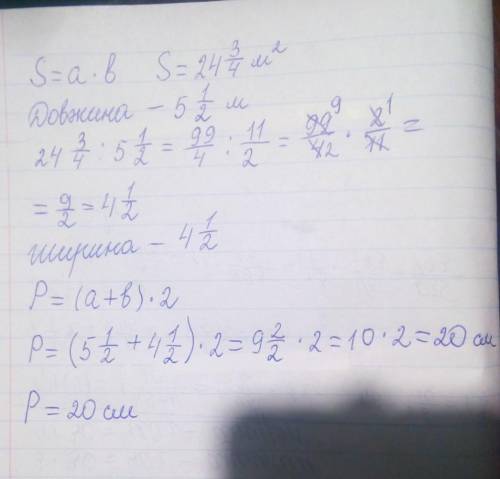 S = a · b   S = 24 3/4 м²
Довжина – 5 1/2 м
24 3/4 : 5 1/2 = 99/4 : 11/2 = 99 9/42 · 2 1/11 =
= 9/2 = 4 1/2
ширина – 4 1/2
P = (a+b) · 2
P = (5 1/2 + 4 1/2) · 2 = 9 2/2 · 2 = 10 · 2 = 20 см
P = 20 см